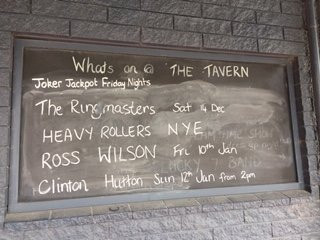 Whats on @ THE TAVERN
Joker Jackpot Friday Nights
The Ringmasters Sat 14 Dec
HEAVY ROLLERS NYE
ROSS WILSON Fri 10th Jan
Clinton Hutton Sun 12th Jan from 2pm